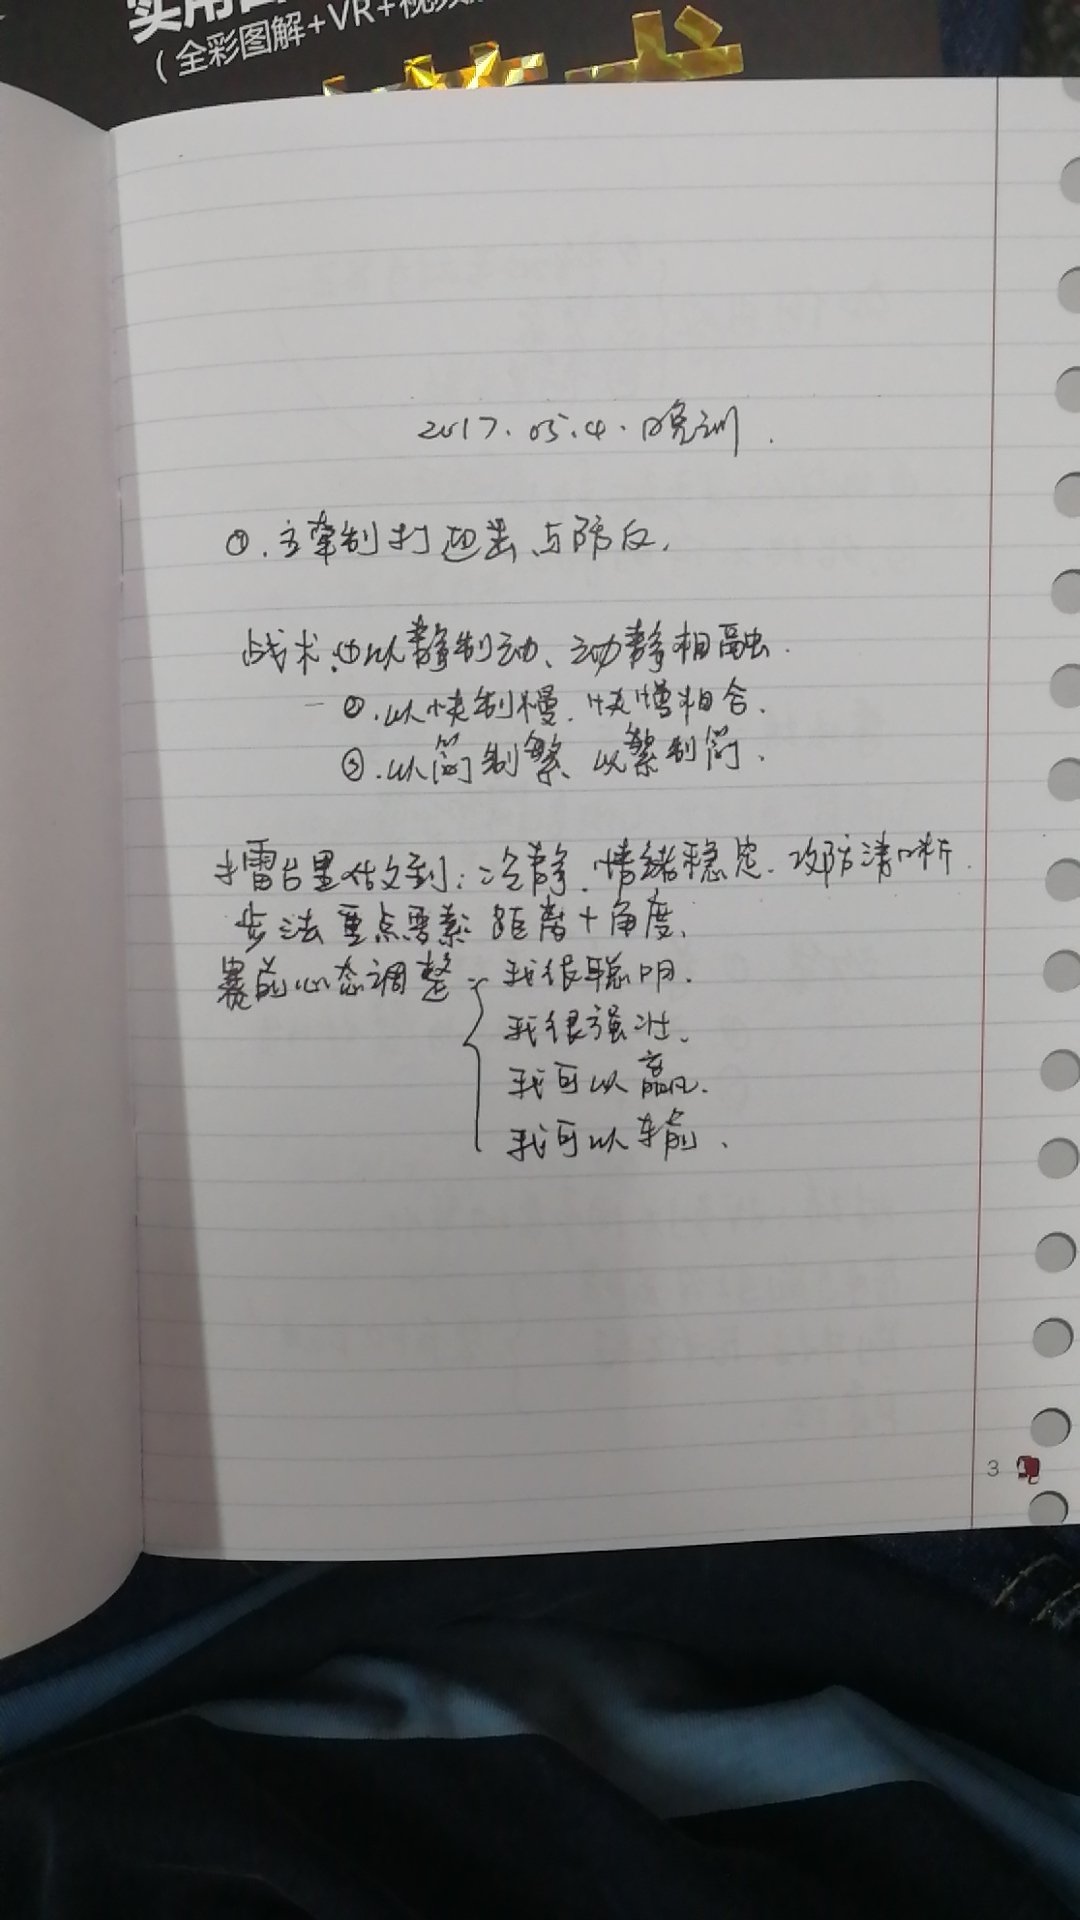 实用
(全彩图解+VR+视频
2017.05.4.晚训.
①.主牵制打迎击与防反.
战术.①以静制动、动静相融.
②.以快制慢.快慢相合.
③.以简制繁、以繁制简.
擂台里做到:冷静.情绪稳定.攻防清晰.
步法重点要素:距离+角度.
赛前心态调整
我很聪明.
我很强壮.
我可以赢.
我可以输.
3